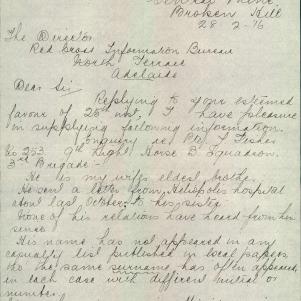 Central Mine
Broken Hill
28-2-16
The Director
Red Cross Information Bureau
North Terrace
Adelaide
Dear Sir
Replying to your esteemed
favour of 25th inst, I have pleasure
in supplying following information.
Enquiry re Pte J Fisher
No 253 9th Light Horse B Squadron.
3rd Brigade—
He is my wifes eldest brother.
He sent a letter from Heliopolis hospital
about last October, to his sister
None of his relations have heard from him
since
His name has not appeared in any
casualty list published in local papers
tho' the same surname has often appeared
in each case with different initial or
number.